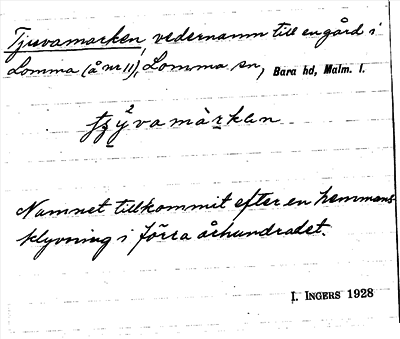 Tjuvamarken, vedernamn till en gård i
Lomma (å nr 11), Lomma sn, Bara hd, Malm. l.
Namnet tillkommit efter en hemmans-
klyvning i förra århundradet.
I. INGERS 1928